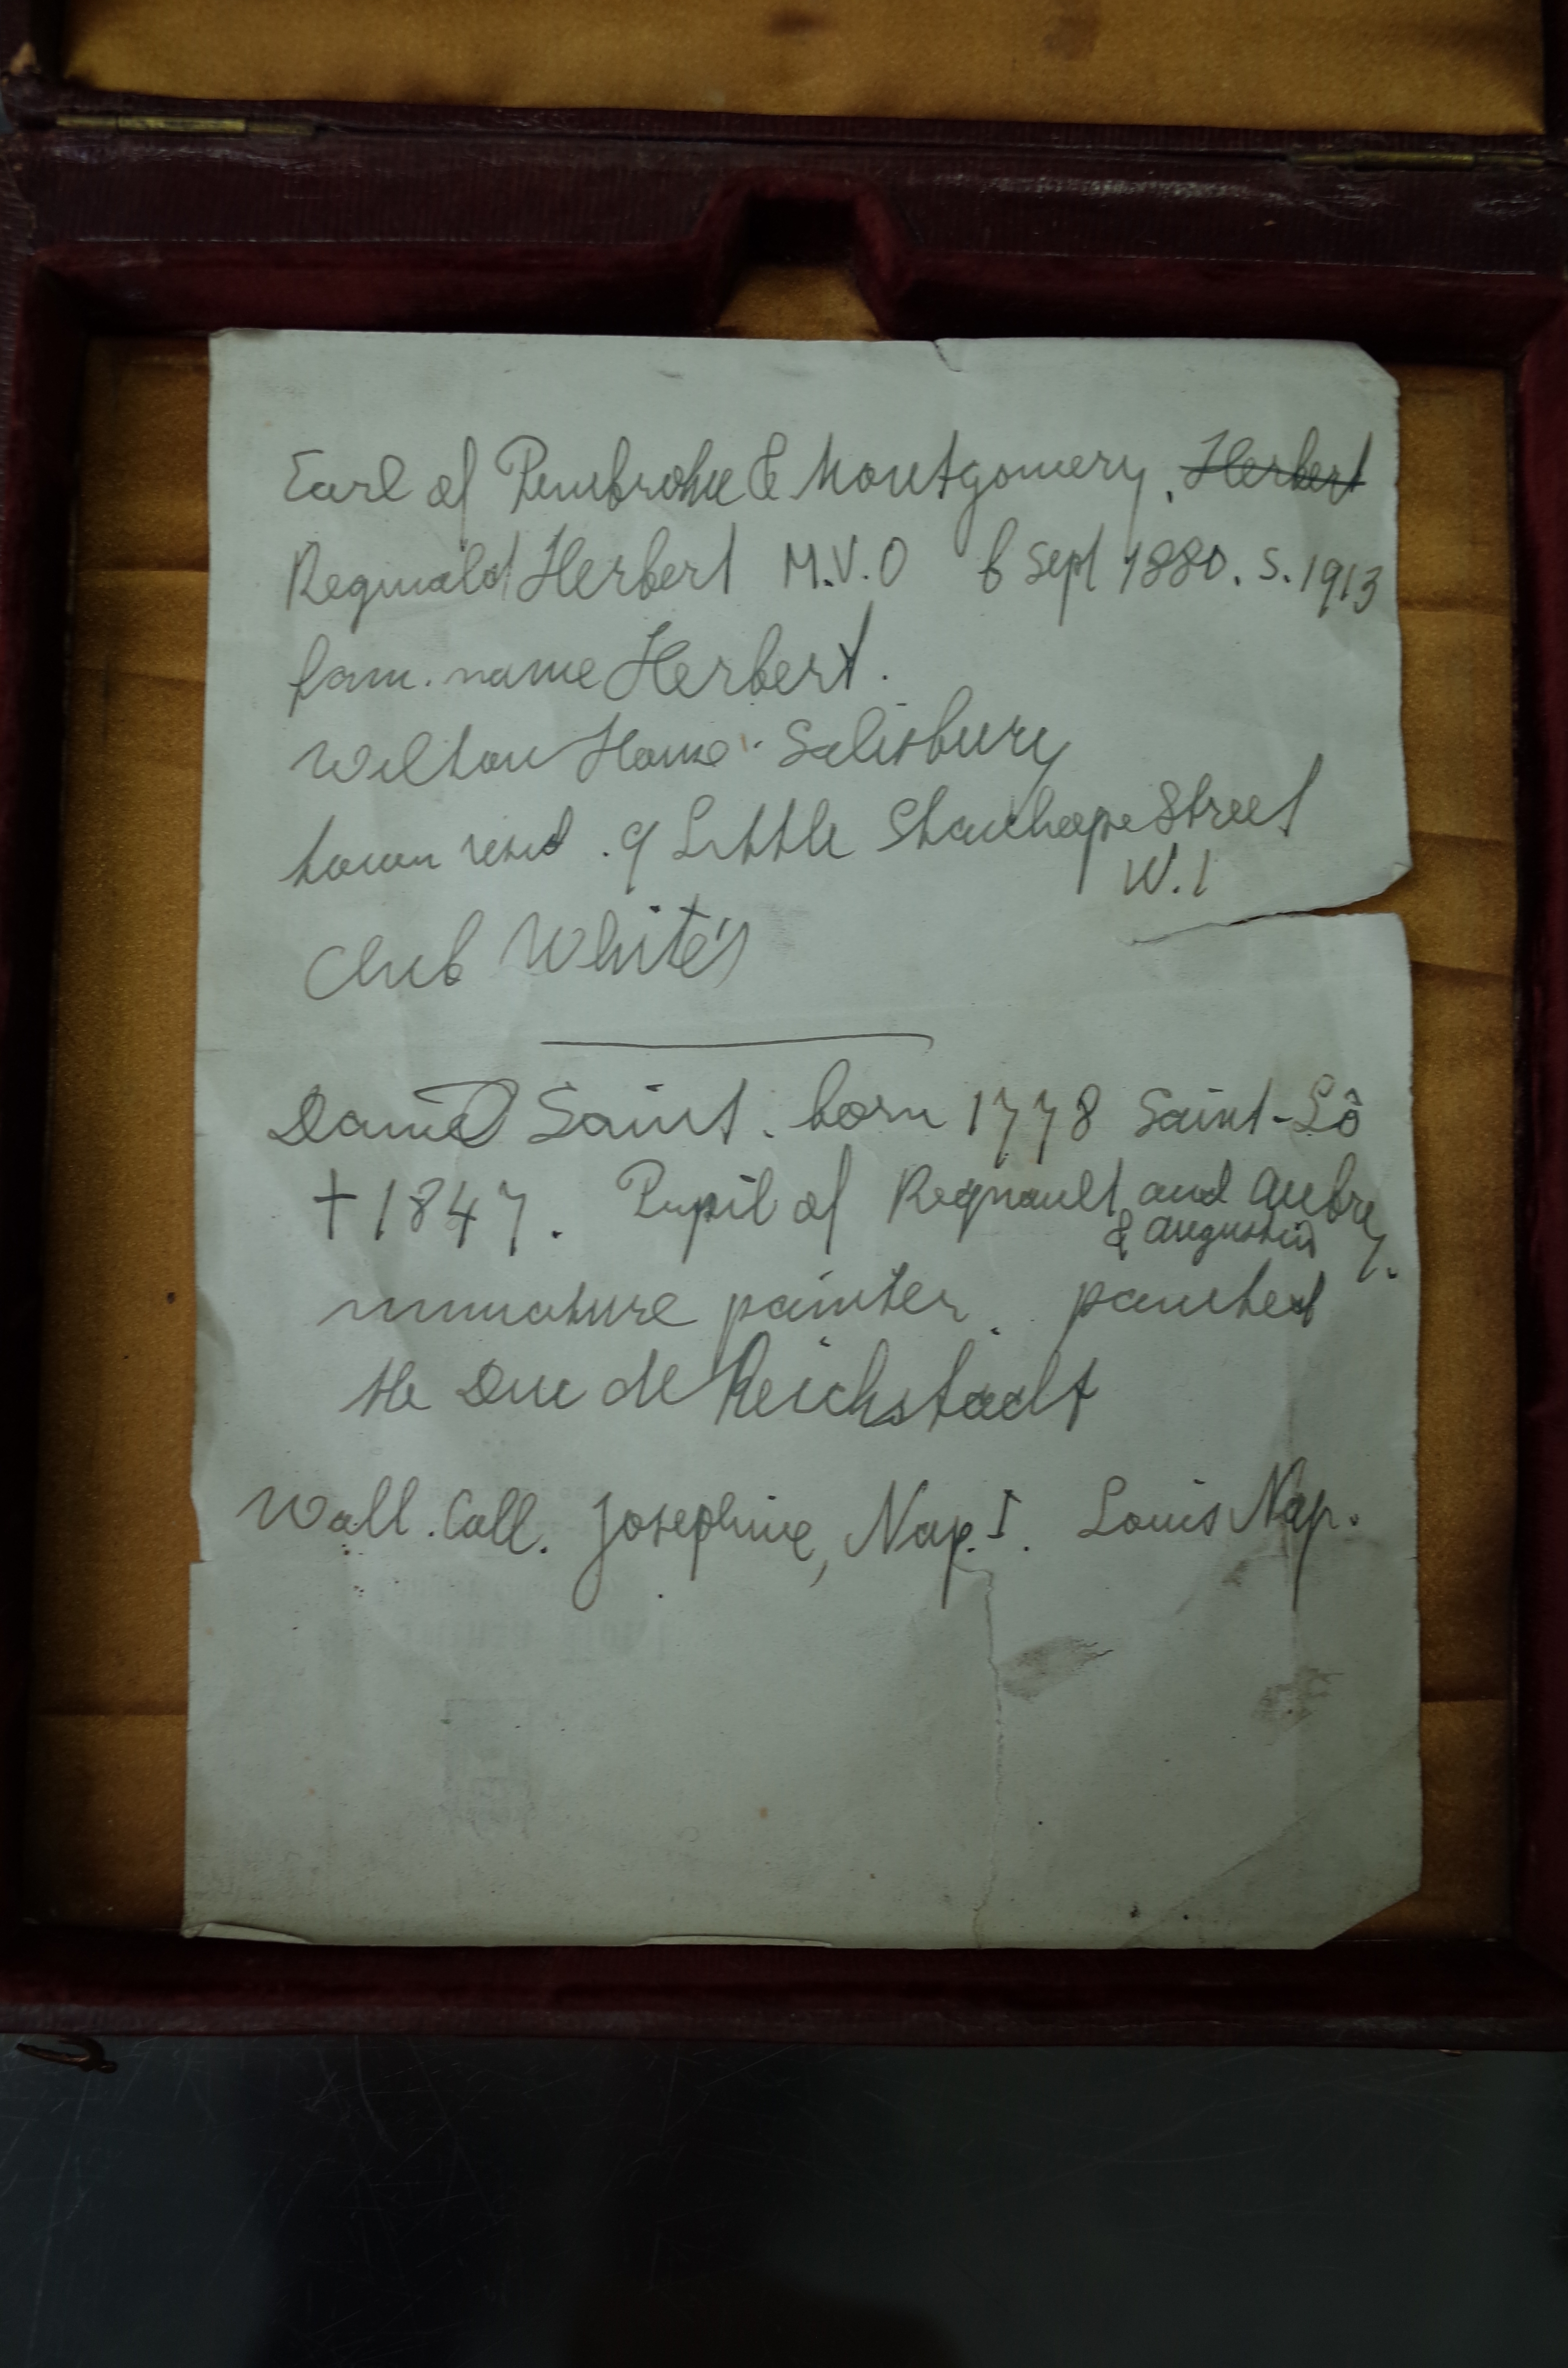 Earl of Pembroke & Montgomery, Herbert
Reginald Herbert M.V.O b Sept 1880. S. 1913
fam. name Herbert.
Wilton House Salisbury
town resid. 9 Little Stanhope Street
W.1
Club White's
Daniel Saint. born 1778 Saint-Lô
† 1847. Pupil of Regnault and Aubry.
& Augustin
miniature painter. painted
the Duc de Reichstadt
Wall. Coll. Josephine, Nap. I. Louis Nap.